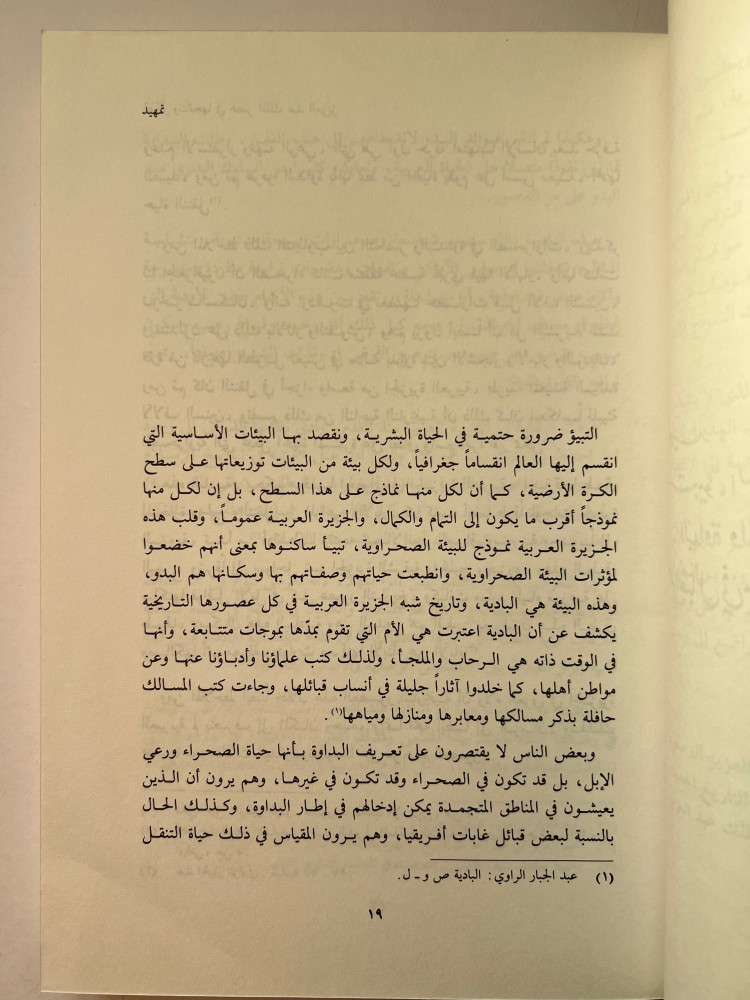 تمهيد
التبيؤ ضرورة حتمية في الحياة البشرية، ونقصد بها البيئات الأساسية التي
انقسم إليها العالم انقساماً جغرافياً، ولكل بيئة من البيئات توزيعاتها على سطح
الكرة الأرضية، كما أن لكل منها نماذج على هذا السطح، بل إن لكل منها
نموذجاً أقرب ما يكون إلى التمام والكمال، والجزيرة العربية عموماً، وقلب هذه
الجزيرة العربية نموذج للبيئة الصحراوية، تبيأ ساكنوها بمعنى أنهم خضعوا
لمؤثرات البيئة الصحراوية، وانطبعت حياتهم وصفاتهم بها وسكانها هم البدو،
وهذه البيئة هي البادية، وتاريخ شبه الجزيرة العربية في كل عصورها التاريخية
يكشف عن أن البادية اعتبرت هي الأم التي تقوم بمدّها بموجات متتابعة، وأنها
في الوقت ذاته هي الرحاب والملجأ، ولذلك كتب علماؤنا وأدباؤنا عنها وعن
مواطن أهلها، كما خلدوا آثاراً جليلة في أنساب قبائلها، وجاءت كتب المسالك
حافلة بذكر مسالكها ومعابرها ومنازلها ومياهها(١).
وبعض الناس لا يقتصرون على تعريف البداوة بأنها حياة الصحراء ورعي
الإبل، بل قد تكون في الصحراء وقد تكون في غيرها، وهم يرون أن الذين
يعيشون في المناطق المتجمدة يمكن إدخالهم في إطار البداوة، وكذلك الحال
بالنسبة لبعض قبائل غابات أفريقيا، وهم يرون المقياس في ذلك حياة التنقل
(١) عبد الجبار الراوي: البادية ص و ـ ل.
١٩